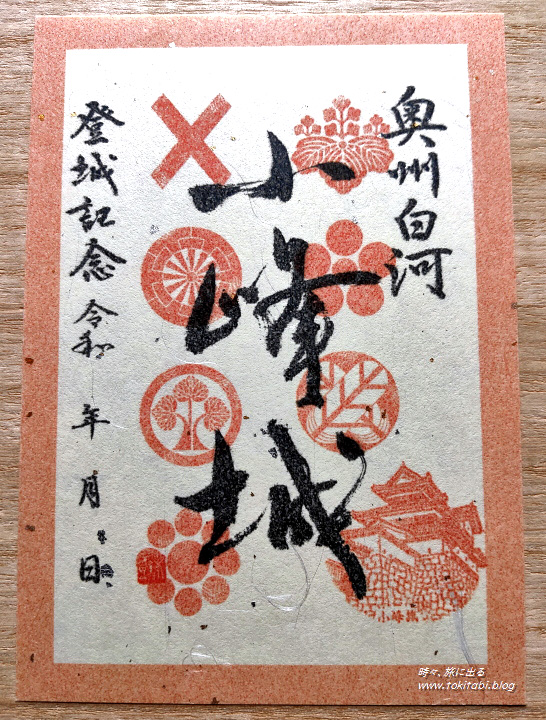 奥州白河
小峰城
登城記念 令和 年 月 日
小峰城
時々、旅に出る
www.tokitabi.blog